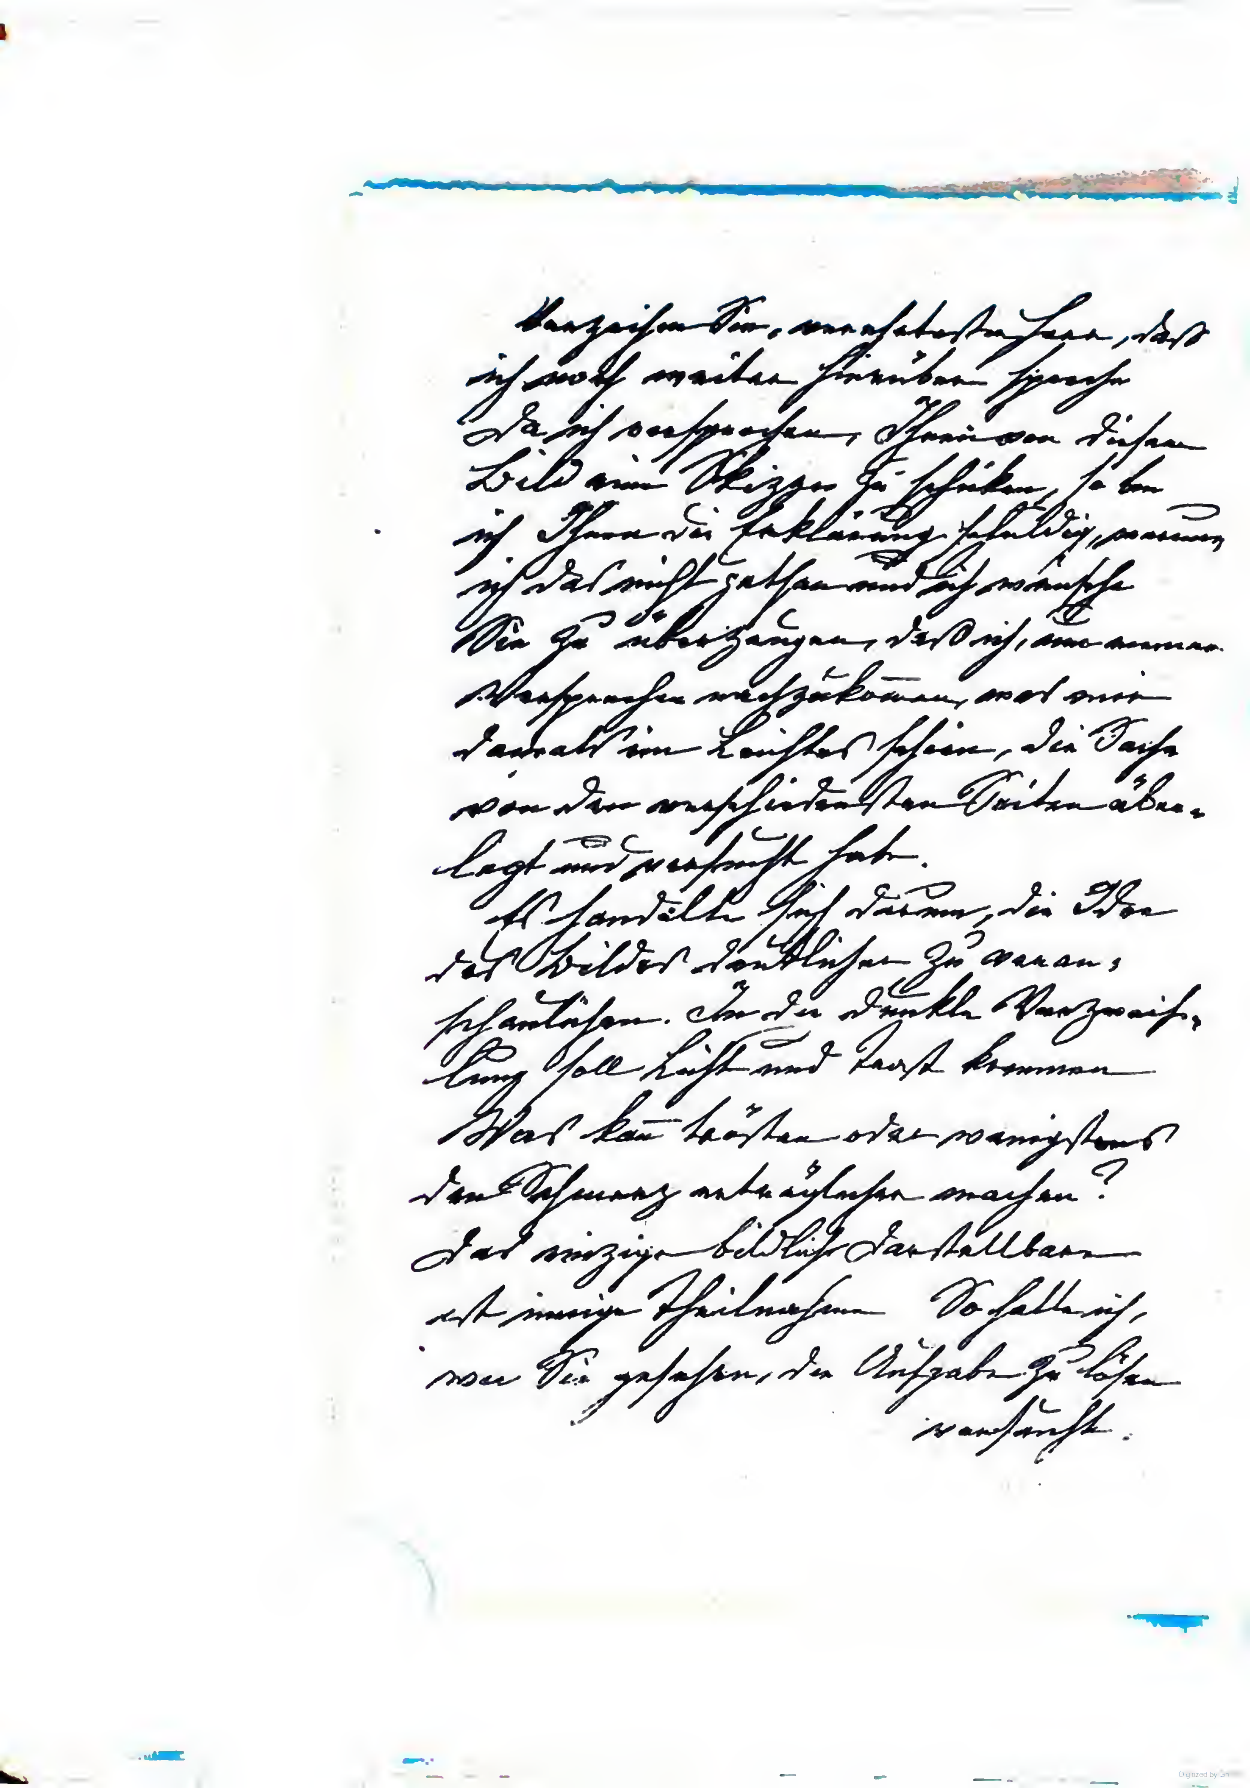 Verzeihen Sie, verehrtester Herr, daß
ich noch weiter hierüber spreche
Da ich versprochen, Ihnen von diesem
Bild eine Skizze zu schicken, so bin
ich Ihnen die Erklärung schuldig, warum
ich das nicht gethan und ich wünsche
Sie zu überzeugen, daß ich, um meinem
Versprechen nachzukomen, was mir
damals ein Leichtes schien, die Sache
von den verschiedensten Seiten über-
legt und versucht habe.
Es handelte sich darum, die Idee
des Bildes deutlicher zu veran-
schaulichen. In die dunkle Verzweif-
lung soll Licht und Trost kommen
Was kan trösten oder wenigstens
den Schmerz erträglicher machen?
Das einzige bildlich Darstellbare
ist innige Theilnahme So hatte ich,
wie Sie gesehen, die Aufgabe zu lösen
versucht.
Digitized by